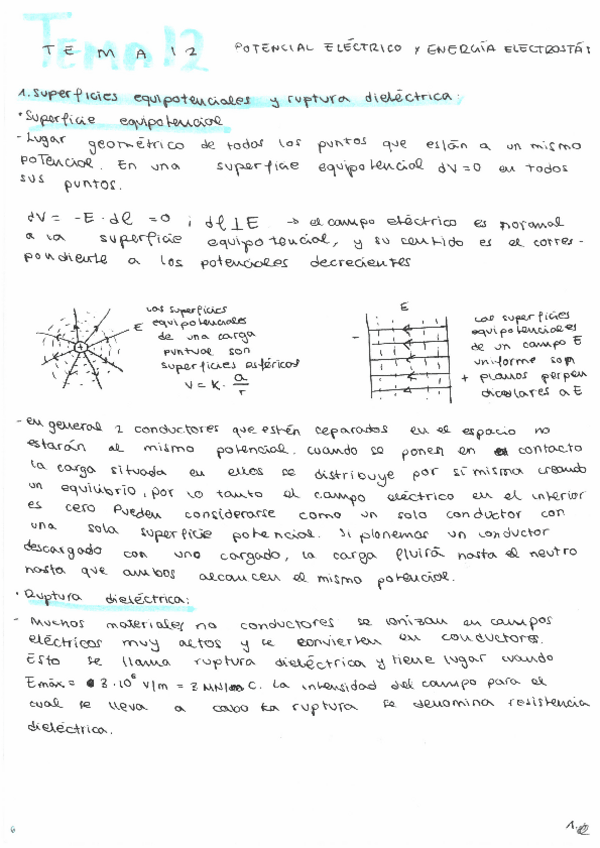 TEMA 12
TEMA 12 POTENCIAL ELÉCTRICO Y ENERGÍA ELECTROSTÁ
1. Superficies equipotenciales y ruptura dieléctrica:
• Superficie equipotencial
- Lugar geométrico de todos los puntos que están a un mismo
potencial. En una superficie equipotencial dV=0 en todos
sus puntos.
dV = -E · dl = 0 ; dl ⊥ E → el campo eléctrico es normal
a la superficie equipotencial, y su sentido es el corres-
pondiente a los potenciales decrecientes
E
Las superficies
equipotenciales
de una carga
puntual son
superficies esféricos
V = K · a/r
E
-
+
Las superficies
equipotenciales
de un campo E
uniforme son
planos perpen
diculares a E
- En general 2 conductores que estén ceparados en el espacio no
estarán al mismo potencial. cuando se ponen en contacto
la carga situada en ellos se distribuye por sí misma creando
un equilibrio, por lo tanto el campo eléctrico en el interior
es cero Pueden considerarse como un solo conductor con
una sola superficie potencial. Si ponemos un conductor
descargado con uno cargado, la carga fluirá hasta el neutro
hasta que ambos alcancen el mismo potencial.
• Ruptura dieléctrica:
- Muchos materiales no conductores se ionizan en campos
eléctricos muy altos y se convierten en conductores.
Esto se llama ruptura dieléctrica y tiene lugar cuando
Emáx = 3·10⁶ V/m = 3 MN/C. La intensidad del campo para el
cual se lleva a cabo la ruptura se denomina resistencia
dieléctrica.
6
1.